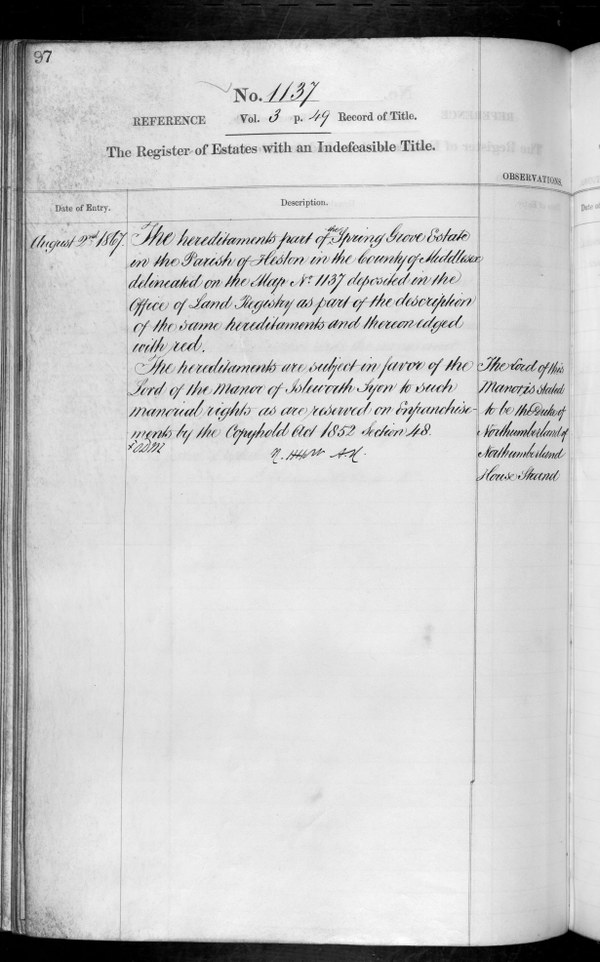 97
No. 1137
REFERENCE Vol. 3 p. 49 Record of Title.
The Register of Estates with an Indefeasible Title.
OBSERVATIONS.
Date of Entry.
Description.
August 2nd 1867.
The hereditaments part of the Spring Grove Estate
in the Parish of Heston in the County of Middlesex
delineated on the Map No. 1137 deposited in the
Office of Land Registry as part of the description
of the same hereditaments and thereon edged
with red.
The hereditaments are subject in favor of the
Lord of the Manor of Isleworth Syon to such
manorial rights as are reserved on Enfranchise-
ments by the Copyhold Act 1852 Section 48.
The Lord of this
Manor is stated
to be the Duke of
Northumberland of
Northumberland
House Strand